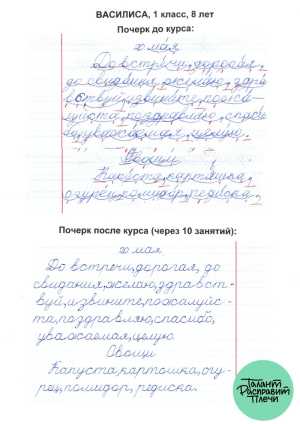 ВАСИЛИСА, 1 класс, 8 лет
Почерк до курса:
20 мая
До встречи, дорогая,
до свидания, желаю, здра
вствуй, извините, пожа-
луйста, поздравляю, спаси
бо, уважаемая, целую.
Овощи
Капуста, картошка,
огурец, помидор, редиска.
Почерк после курса (через 10 занятий):
20 мая
До встречи, дорогая, до
свидания, желаю, здравст-
вуй, извините, пожалуйс-
та, поздравляю, спасибо,
уважаемая, целую.
Овощи
Капуста, картошка, огу-
рец, помидор, редиска.
Талант
Расправит
Плечи